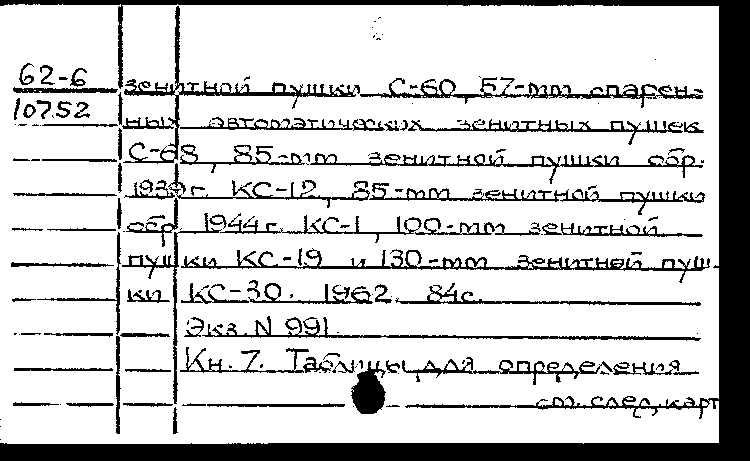 62-6
10752
зенитной пушки С-60, 57-мм спарен-
ных автоматических зенитных пушек
С-68, 85-мм зенитной пушки обр.
1939г. КС-12, 85-мм зенитной пушки
обр 1944г. КС-1, 100-мм зенитной
пушки КС-19 и 130-мм зенитной пуш-
ки КС-30. 1962. 84с.
Экз. N 991.
Кн. 7. Таблицы для определения
см. след, карт